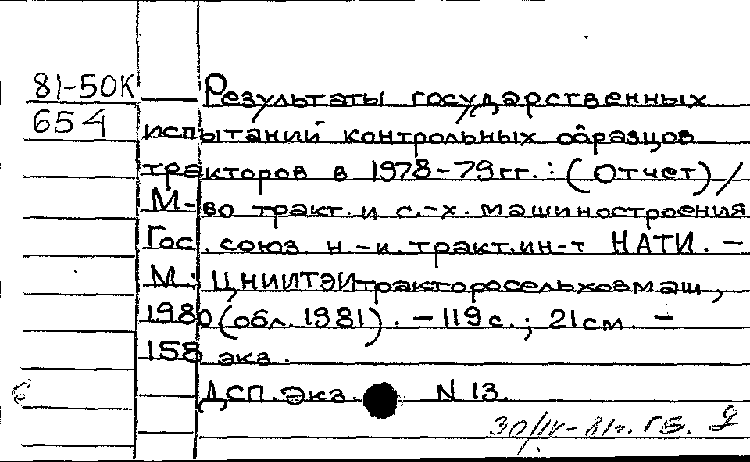 81-50К Результаты государственных
654 испытаний контрольных образцов
тракторов в 1978-79гг.: (Отчет) /
М-во тракт. и с.-х. машиностроения
Гос. союз. н.-и. тракт. ин-т НАТИ. -
М.: ЦНИИТЭИтракторосельхозмаш,
1980 (обл. 1981). - 119 с.; 21 см. -
158 экз.
ДСП. Экз. N 13.
30/IV-81г. ГБ.